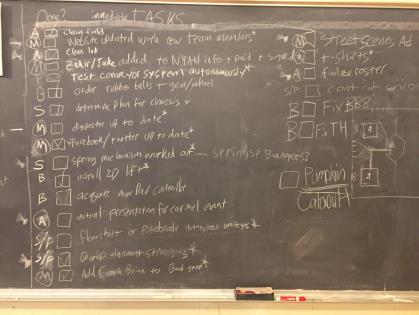 Done? immediate TASKS
A Clean field
M Website updated with new team members*
A Clean bot
M Zahir/Jake added to NYAN info + paid + signed
Test conveyor system autonomously*
G order rubber belts + gear/wheel
S determine plan for chassis*
M up to date*
M Facebook/twitter up to date*
S spring mechanism worked out* — springs? Bungees?
B install 2D lift*
B acquire new Rev Controller
A initial presentation for carmel event
S/P flowchart or Pseudocode autonomous strategys*
S/P develop alignment strategies*
M Add Coach Brian to Band group*
M Street Scenes Ad
B t-shirts*
A finalize roster
S/P cont. rot servo
B Fix BB8
B Fix TH
Pumpkin
Catapult